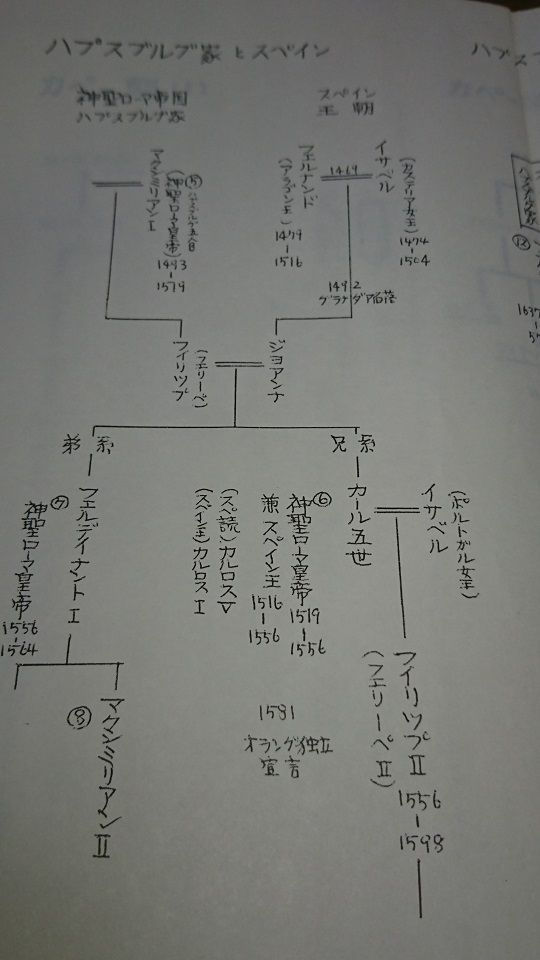 ハプスブルグ家とスペイン
ハプス
神聖ローマ帝国
ハプスブルグ家
スペイン
王朝
マクシミリアンI
(神聖ローマ皇帝)
⑤
1493
-
1519
フェルナンド
(アラゴン王)
1479
-
1516
1469
イサベル
(カステリア女王)
1474
-
1504
1492
グラナダア陥落
フィリップ
(フェリーペ)
ジョアンナ
弟系
兄系
フェルディナントI
⑦
神聖ローマ皇帝
1556
-
1564
⑧
マクシミリアンII
カール五世
⑥
神聖ローマ皇帝
1519
-
1556
兼スペイン王
1516
-
1556
(スペ読)カルロスV
(スペイン王)カルロスI
イサベル
(ポルトガル女王)
フィリップII
(フェリーペII)
1556
-
1598
1581
オランダ独立
宣言
⑫
1637